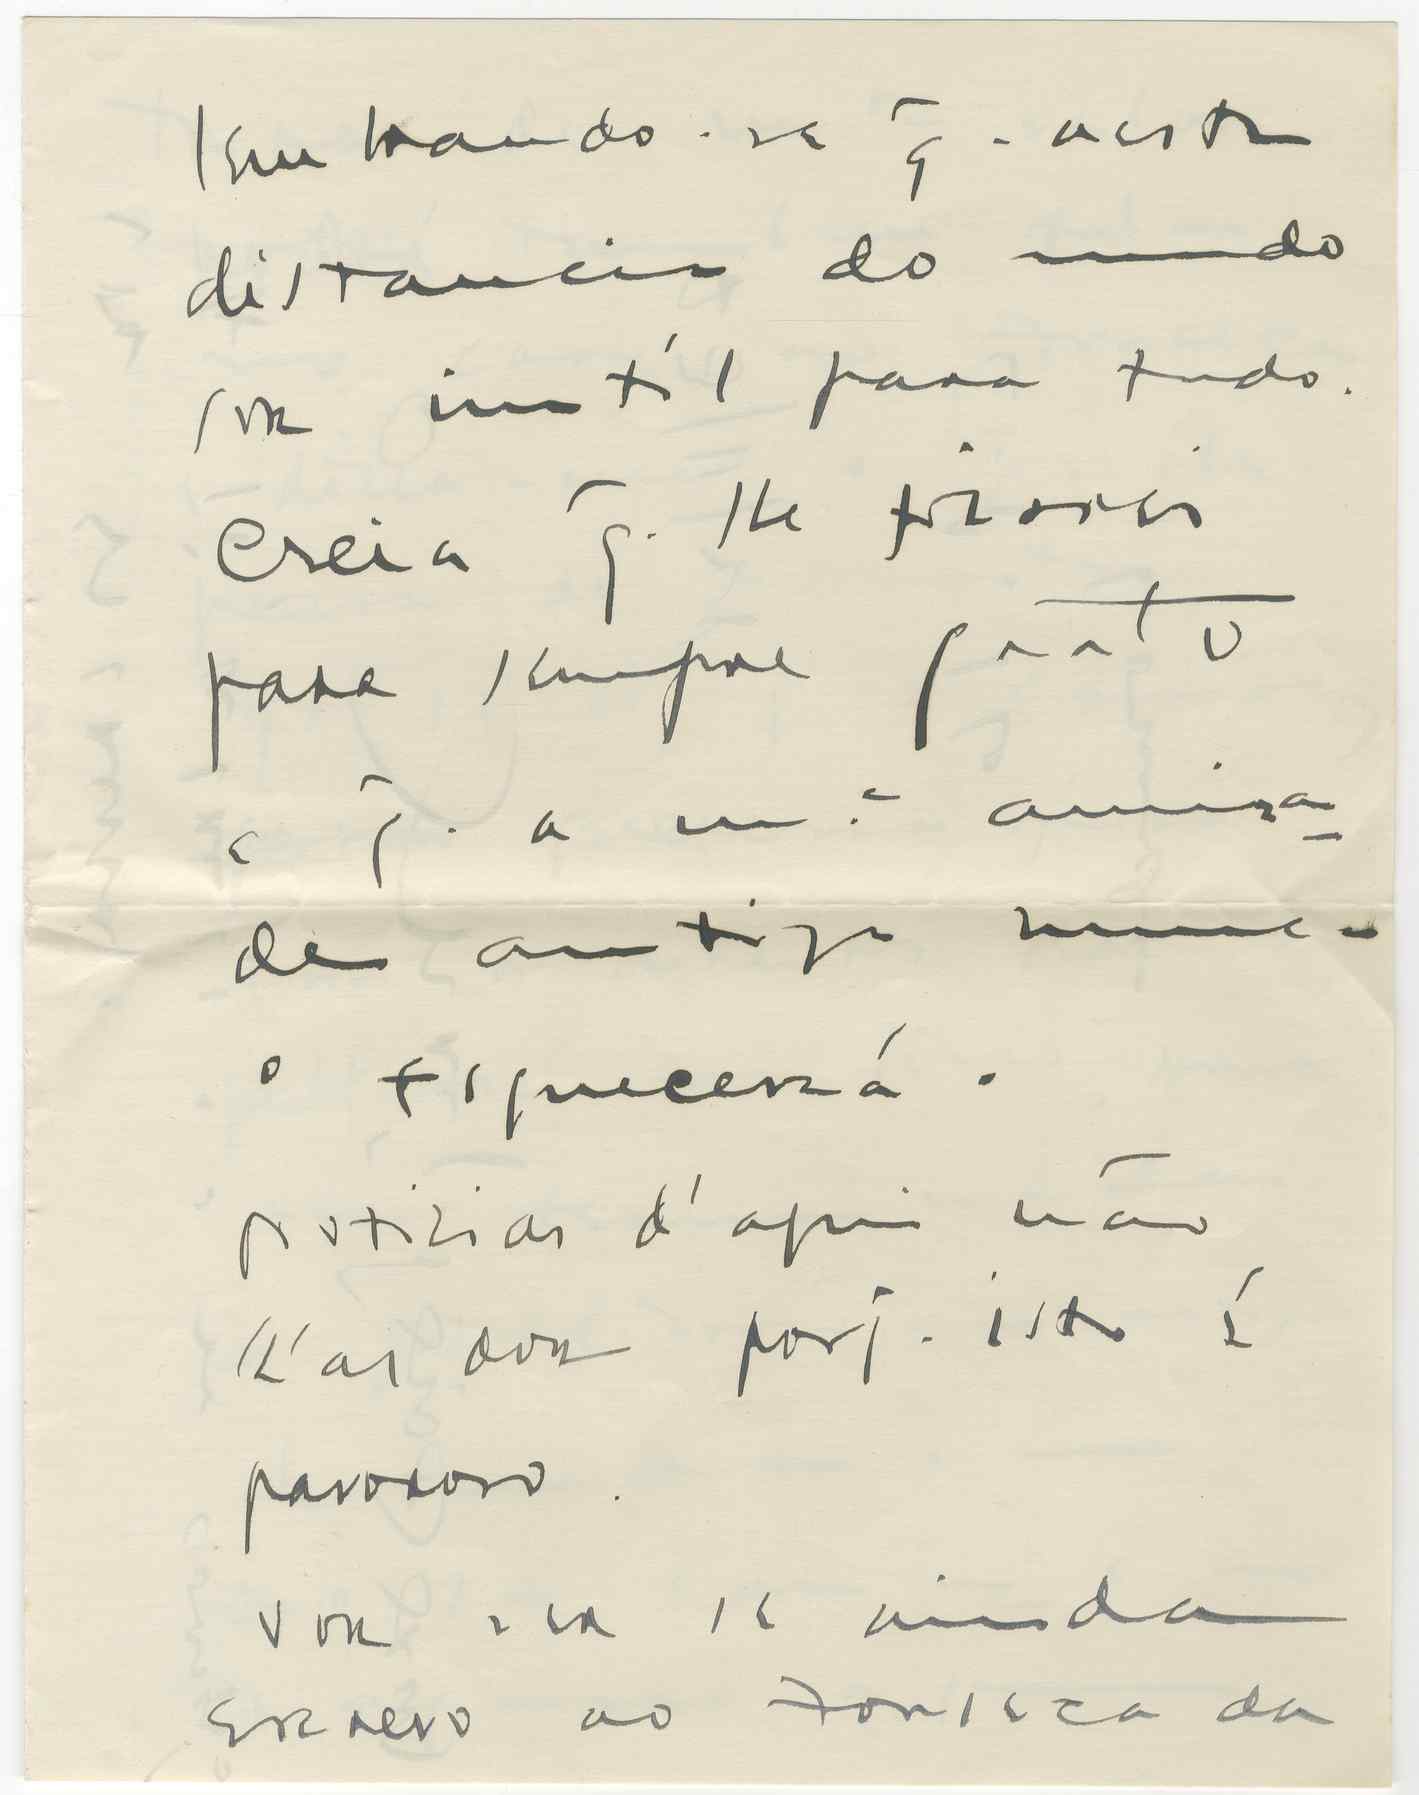 lembrando-se q̃. nesta
distancia do mundo
sou inutíl para tudo.
Creia q̃. lhe ficarei
para sempre grato
e q̃. a m.ª amiza-
de antiga nunca
o esquecerá.
Noticias d'aqui não
lh'as dou porq̃. isto é
pavoroso.
Vou ver se ainda
escrevo ao Fonseca da